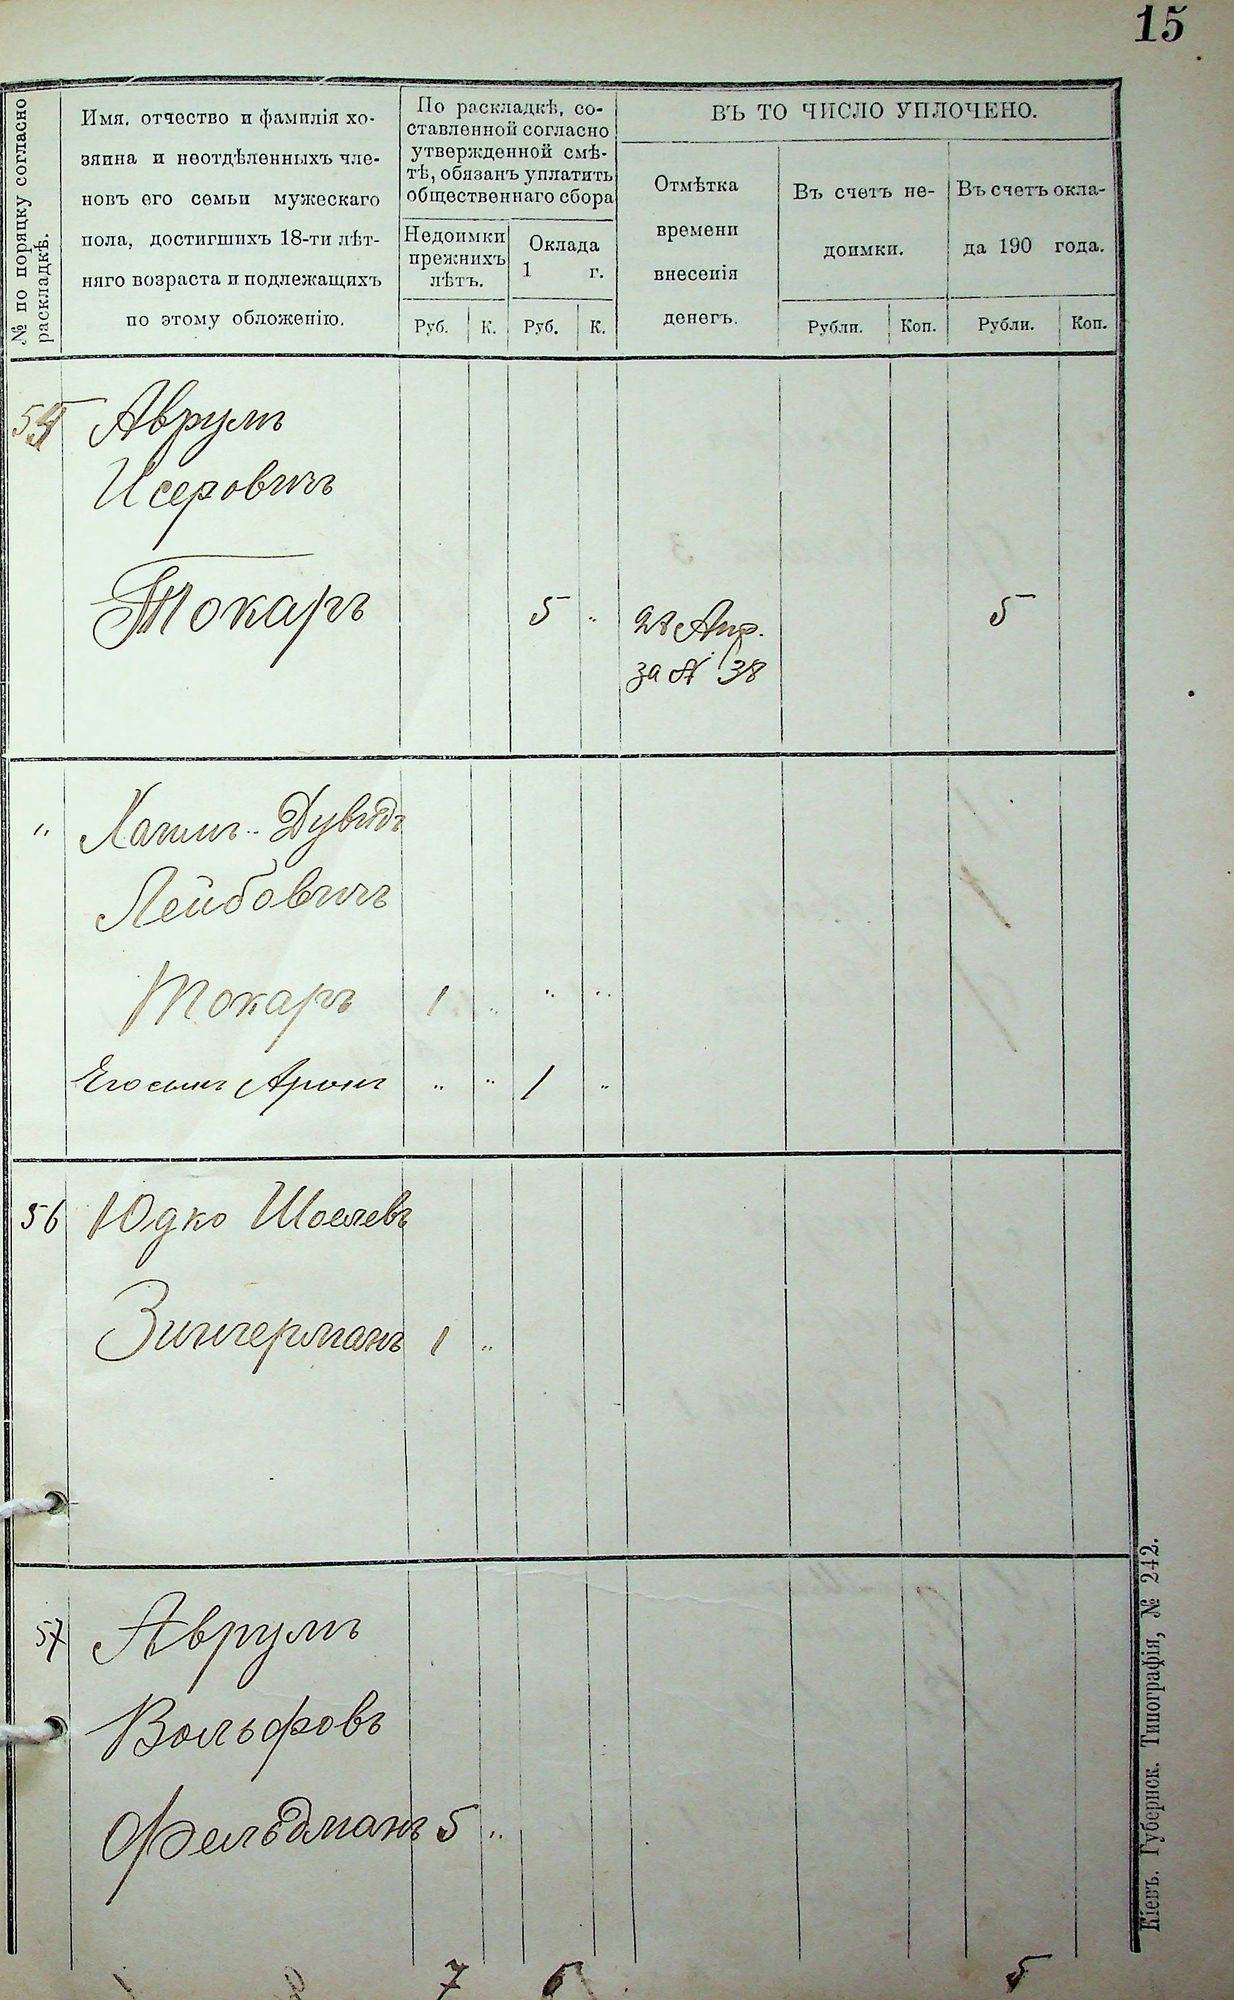 15
№ по поряцку согласно
раскладкѣ.
Имя, отчество и фамилія хо-
зяина и неотдѣленныхъ чле-
новъ его семьи мужескаго
пола, достигшихъ 18-ти лѣт-
няго возраста и подлежащихъ
по этому обложенію.
По раскладкѣ, со-
ставленной согласно
утвержденной смѣ-
тѣ, обязанъ уплатить
общественнаго сбора
Недоимки
прежнихъ
лѣтъ.
Оклада
1 г.
Руб. К. Руб. К.
ВЪ ТО ЧИСЛО УПЛОЧЕНО.
Отмѣтка
времени
внесенія
денегъ.
Въ счетъ не-
доимки.
Въ счетъ окла-
да 190 года.
Рубли. Коп. Рубли. Коп.
55 Аврумъ
Исеровичъ
Токаръ 5 „ 28 Апр. 5
за № 38
„ Хаимъ-Дувидъ
Лейбовичъ
Токаръ 1 „ „ „
Его сынъ Аронъ „ „ 1 „
56 Юдко Шоелевъ
Зингерманъ 1 „
57 Аврумъ
Вольфовъ
Фельдманъ 5 „
7 6 5
Кіевъ. Губернск. Типографія, № 242.